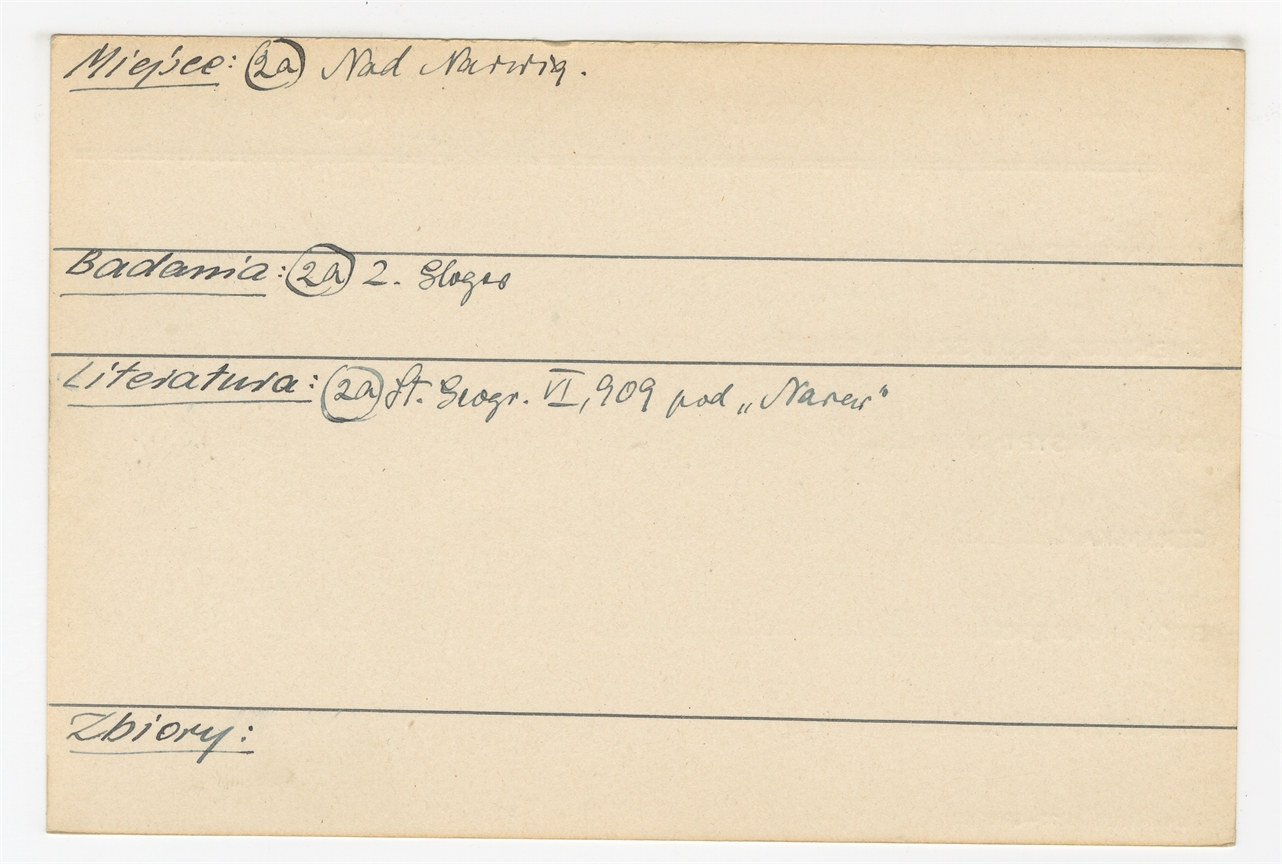 Miejsce: 2a Nad Narwią.
Badania: 2a Z. Gloger
Literatura: 2a Sł. Geogr. VI, 909 pod „Narew"
Zbiory: